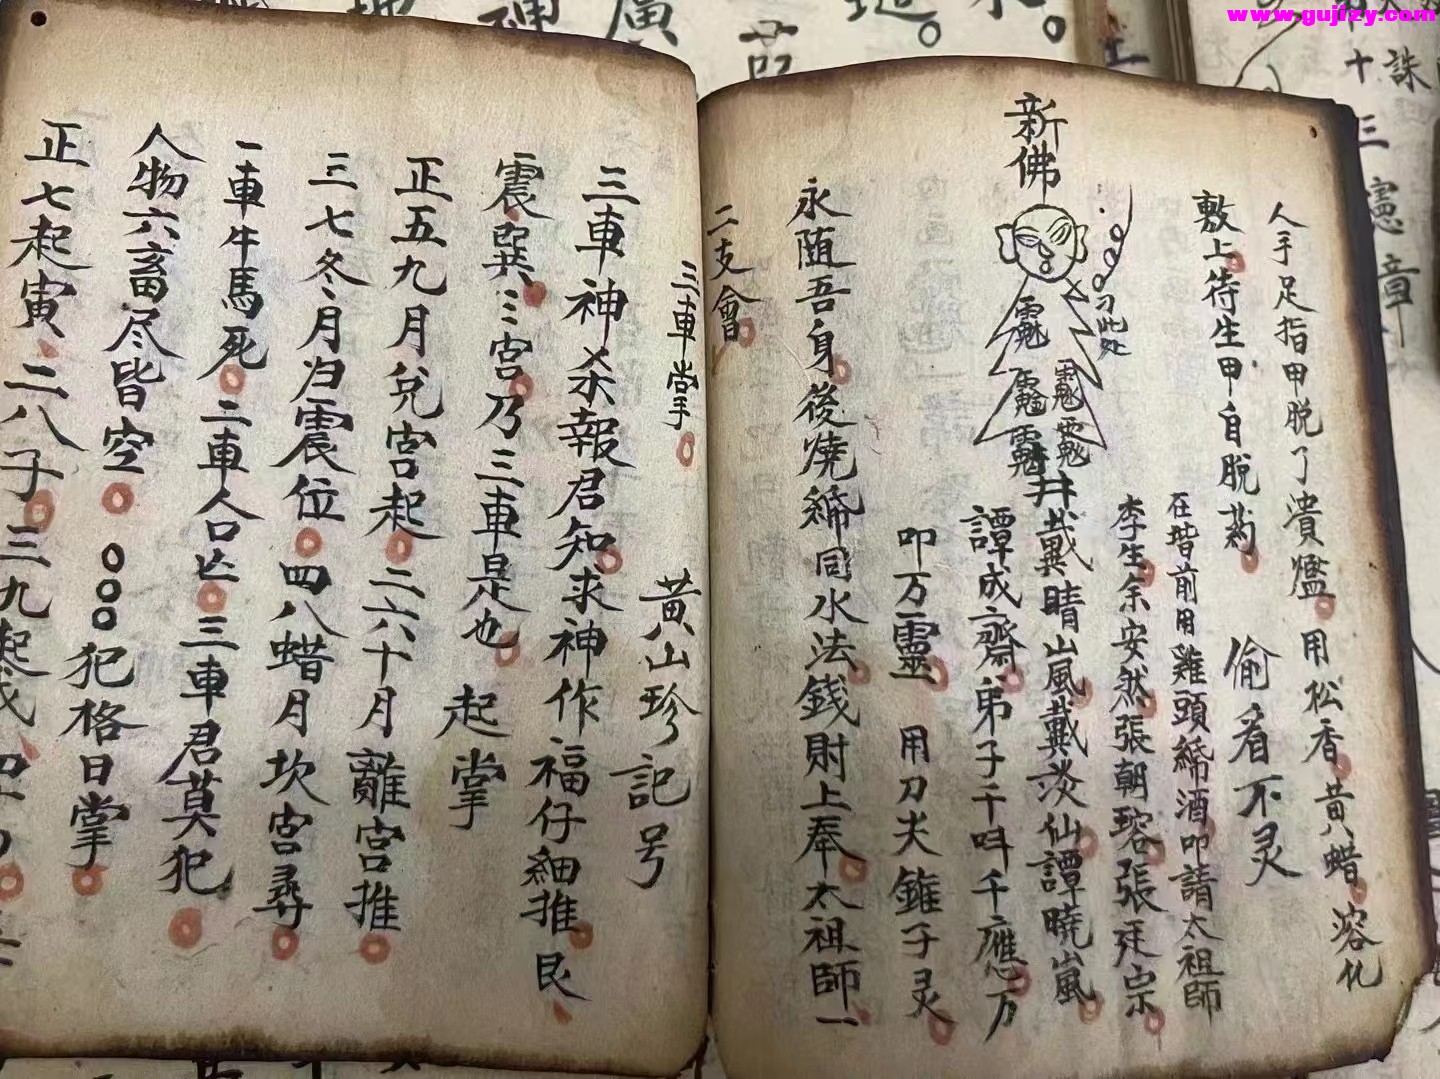 www.gujizy.com
人手足指甲脱了潰爁用松香黄蜡溶化
敷上待生甲自脱
偷看不灵
在堦前用雞頭紙酒叩請太祖師
李生余安然張朝瑢張廷宗
新佛
刀此处
井戴巽晴山風戴淡仙譚曉嵐
譚成齋弟子千叫千應万
叩万靈
用刀夫錐子灵
永随吾身後燒紙同水法錢財上奉太祖師一
二支會
三車掌
黄山珍記号
三車神杀報君知求神作福仔細推艮
震巽三宫乃三車是也
起掌
正五九月兌宮起二六十月離宫推
三七冬月归震位四八蜡月坎宫尋
一車牛馬死二車人口亡三車君莫犯
人物六畜尽皆空
犯格日掌
正七起寅二八子三九起戌